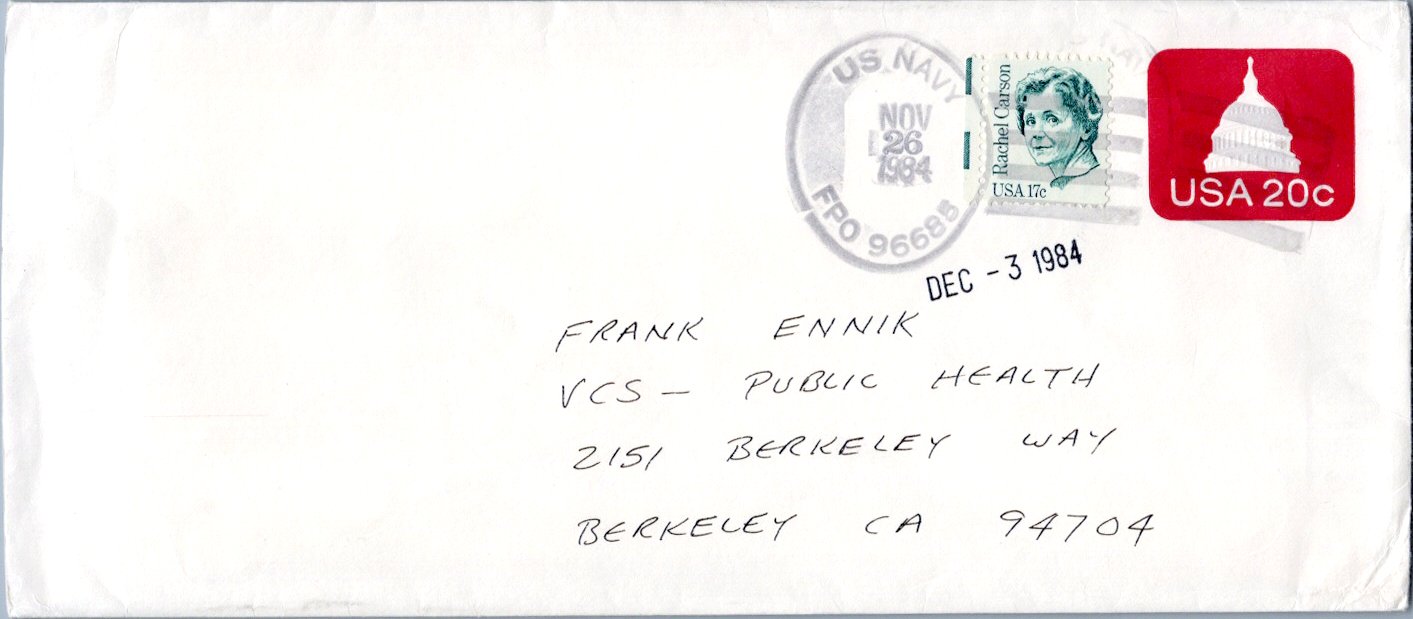 US NAVY
NOV
26
1984
FPO 96685
Rachel Carson
USA 17c
USA 20c
DEC -3 1984
FRANK ENNIK
VCS - PUBLIC HEALTH
2151 BERKELEY WAY
BERKELEY CA 94704